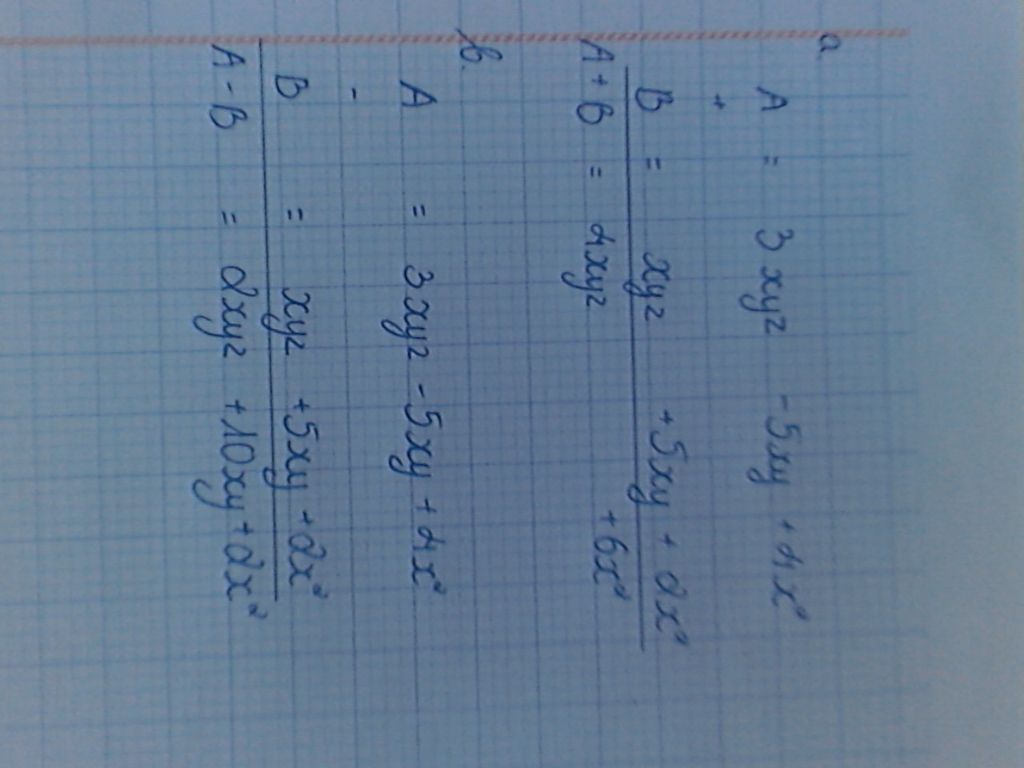 a
A = 3xyz - 5xy + 4x²
+
B = xyz + 5xy + 2x²
A + B = 4xyz + 6x²
b.
A = 3xyz - 5xy + 4x²
-
B = xyz + 5xy + 2x²
A - B = 2xyz + 10xy + 2x²